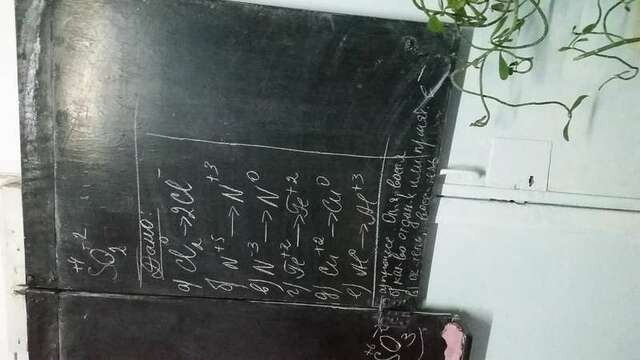 +4 -2
SO₂
Дано:
а) Cl₂⁰ → 2Cl⁻
б) N⁺⁵ → N⁺³
в) N⁻³ → N⁰
г) Fe⁺² → Fe⁺²
д) Cu⁺² → Cu⁰
е) Al⁰ → Al⁺³
а) процесс Ок-я, восст-я
б) кол-во отдан. или принят. е⁻
в) ок-тель, восс-тель
+6
SO₃